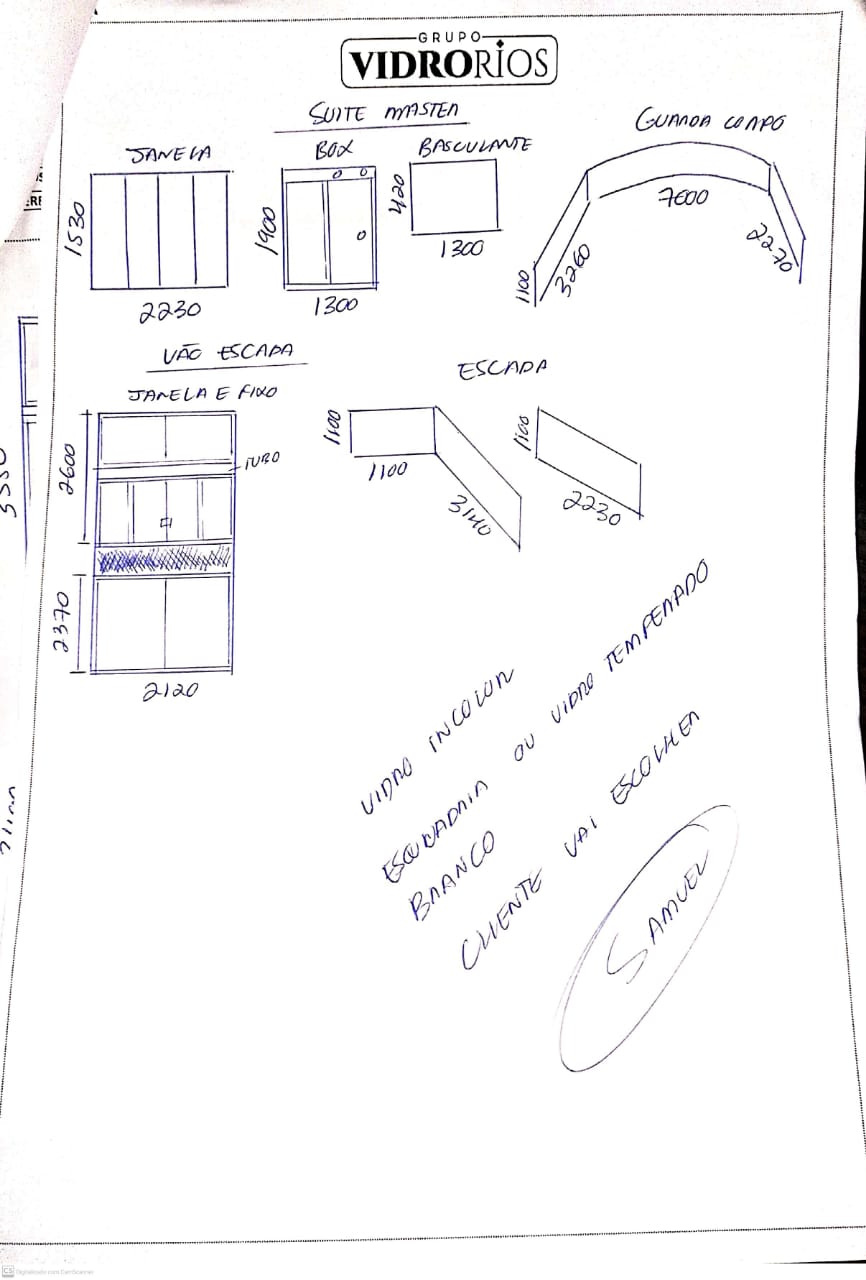 GRUPO
VIDRORIOS
SUITE MASTER
GUARDA CORPO
JANELA
BOX
BASCULANTE
1530
2230
1900
1300
420
1300
7600
1100
3260
2270
VÃO ESCADA
JANELA E FIXO
ESCADA
2600
TUBO
2370
2120
1100
1100
3140
1100
2230
VIDRO INCOLOR
ESQUADRIA OU VIDRO TEMPERADO
BRANCO
CLIENTE VAI ESCOLHER
SAMUEL
CS Digitalizado com CamScanner